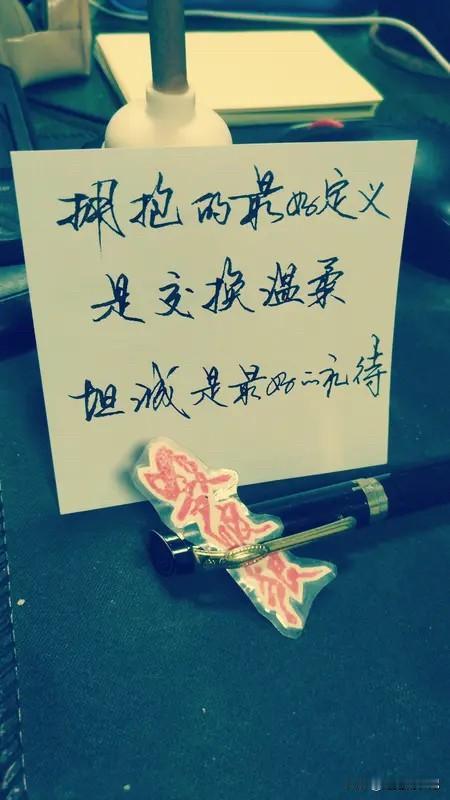 拥抱的最好定义
是交换温柔
坦诚是最好的礼待